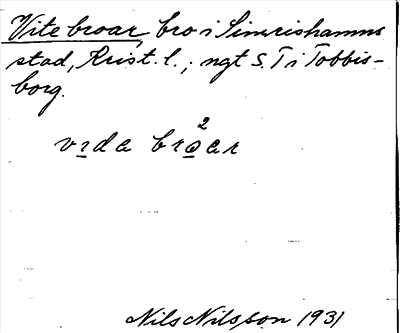 Vite broar, bro i Simrishamns
stad, Krist. l.; ngt S. T i Tobbis-
borg.
vıda broar
2
Nils Nilsson 1931